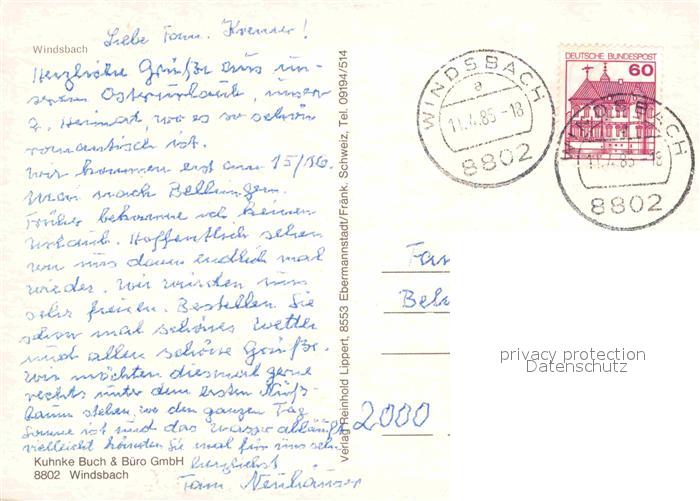 Windsbach
Liebe Fam. Kremer!
Herzliche Grüße aus un-
serem Osterurlaub, unserer
2. Heimat, wo es so schön
romantisch ist.
Wir kommen erst am 15/16.
Mai nach Bellingen.
Früher bekomme ich keinen
Urlaub. Hoffentlich sehen
wir uns dann endlich mal
wieder. Wir würden uns
sehr freuen. Bestellen Sie
schon mal schönes Wetter
und allen schöne Grüße.
Wir möchten diesmal gerne
rechts unter dem ersten Nuß-
baum stehen, wo den ganzen Tag
Sonne ist und das Wasser
vielleicht könnten Sie mal für uns
herzlichst
Fam. Neuhäuser
Kuhnke Buch & Büro GmbH
8802 Windsbach
Verlag Reinhold Lippert, 8553 Ebermannstadt/Fränk. Schweiz, Tel. 09194/514
WINDSBACH
a
11.4.85-18
8802
DEUTSCHE BUNDESPOST
60
WINDSBACH
11.4.85-18
8802
Fam
2000
privacy protection
Datenschutz